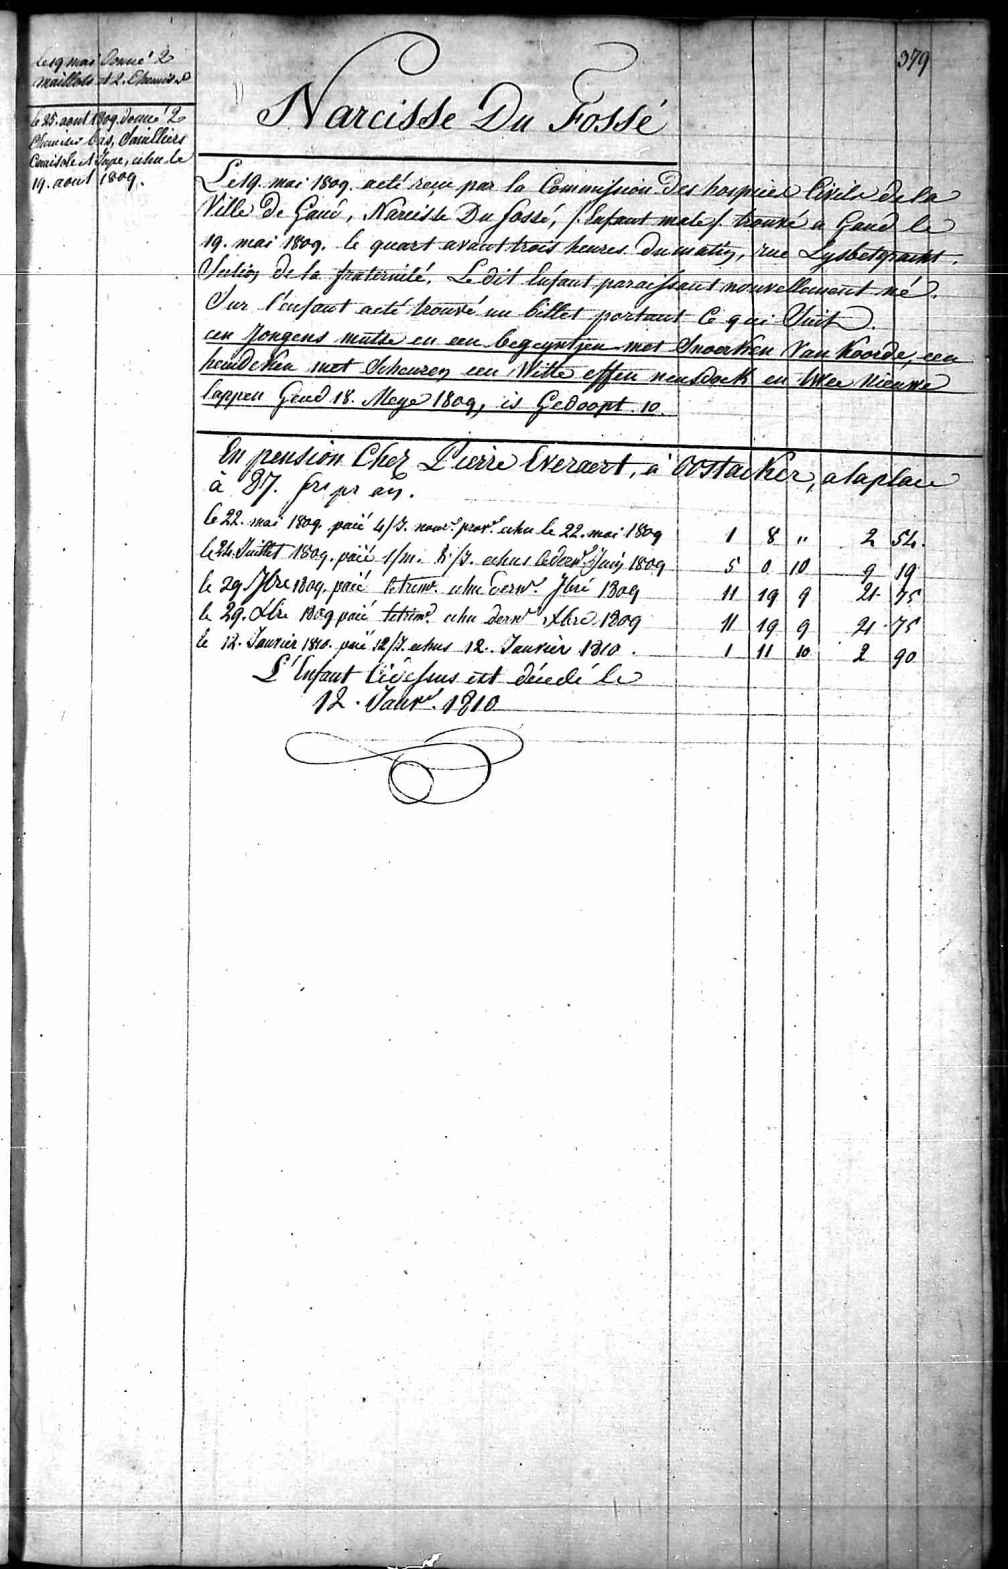 379
Le 19 mai donné 2
maillots et 2. Chemises
le 25. aout 1809. donné 2
Chemises bas, Souilliers
Camisole et Jupe, echu le
19. aout 1809.
Narcisse Du Fossé
Le 19. mai 1809. a eté reçu par la Commission des hospices Civils de la
Ville de Gand, Narcisse Du fossé, /: Enfant male /. trouvé a Gand le
19. mai 1809. le quart avant trois heures du matin, rue
Section de la fraternité. Le dit Enfant paraissant nouvellement né.
Sur l'enfant a eté trouvé un billet portant Ce qui Suit.
een Jongens mutse en een begeyntjen met Snoerken Van Koorde, een
hemdeken met Scheuren een Witte effen neusdoek en twee nieuwe
lappen Gend 18. Meye 1809, is Gedoopt. 10.
En pension Chez Pierre Everaert, à Oostacker, a la place
à 87. frs pr an.
le 22. mai 1809. paié 4/J. nour. prov. echu le 22. mai 1809 1 8 " 2 54.
le 24. Juillet 1809. paié 1/m. 8/J. echus le dern. Juin 1809 5 0 10 9 19
le 29. 7bre 1809. paié le trimr. echu dernr. 7bre 1809 11 19 9 21. 75
le 29. Xbre 1809 paié le trimr. echu dernr. Xbre 1809 11 19 9 21. 75
le 12. Janvier 1810. paié 12/J. echus 12. Janvier 1810. 1 11 10 2 90
L'Enfant Cidessus est décédé le
12. Janvr. 1810